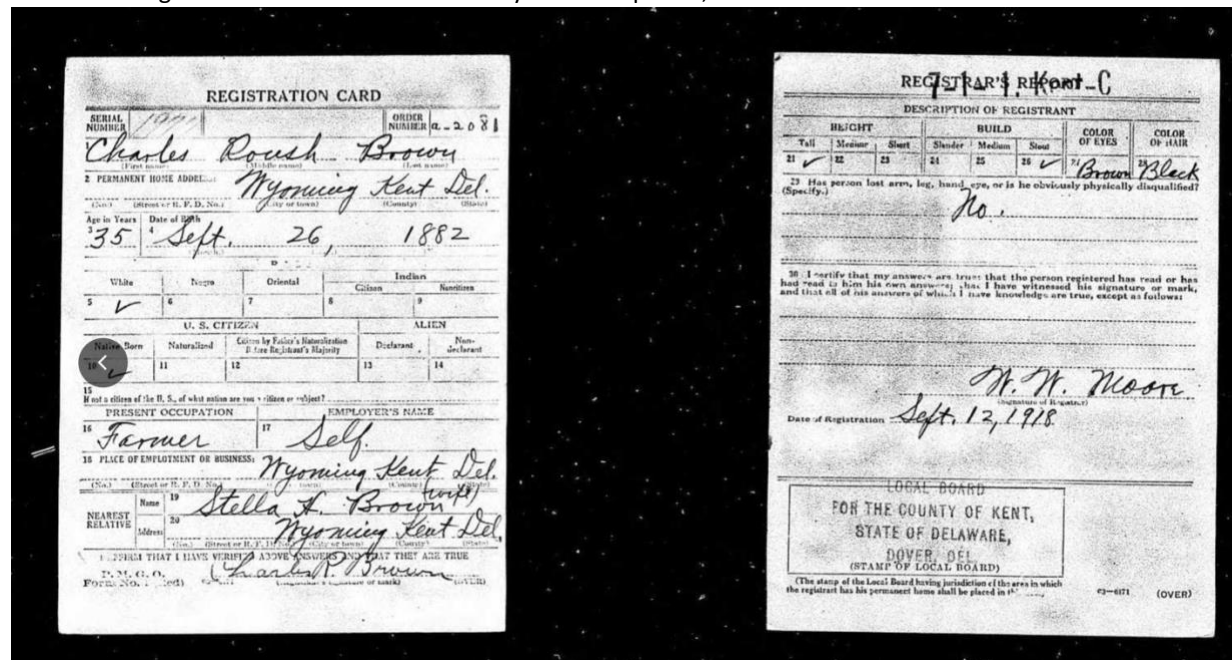 REGISTRATION CARD
SERIAL NUMBER
ORDER NUMBER a-2081
1 Charles Roush Brown
(First name) (Middle name) (Last name)
2 PERMANENT HOME ADDRESS: Wyoming Kent Del.
(No.) (Street or R. F. D. No.) (City or town) (County) (State)
Age in Years Date of Birth
3 35 4 Sept. 26, 1882
White Negro Oriental Indian
Citizen Noncitizen
5 ✓ 6 7 8 9
U. S. CITIZEN ALIEN
Native Born Naturalized Citizen by Father's Naturalization Before Registrant's Majority Declarant Non-declarant
10 ✓ 11 12 13 14
15
If not a citizen of the U. S., of what nation are you a citizen or subject?
PRESENT OCCUPATION EMPLOYER'S NAME
16 Farmer 17 Self.
18 PLACE OF EMPLOYMENT OR BUSINESS: Wyoming Kent Del.
(No.) (Street or R. F. D. No.) (County) (State)
NEAREST RELATIVE Name 19 Stella H. Brown (wife)
Address 20 Wyoming Kent Del.
(No.) (Street or R. F. D. No.) (City or town) (County) (State)
I AFFIRM THAT I HAVE VERIFIED ABOVE ANSWERS AND THAT THEY ARE TRUE
P. M. G. O.
Form No. 1 (Red) Charles R. Brown (OVER)
REGISTRAR'S REPORT
DESCRIPTION OF REGISTRANT
HEIGHT BUILD COLOR OF EYES COLOR OF HAIR
Tall Medium Short Slender Medium Stout
21 ✓ 22 23 24 25 26 ✓ 27 Brown 28 Black
29 Has person lost arm, leg, hand, eye, or is he obviously physically disqualified?
(Specify.)
No.
30 I certify that my answers are true; that the person registered has read or has
had read to him his own answers; that I have witnessed his signature or mark,
and that all of his answers of which I have knowledge are true, except as follows:
W. W. Moore
(Signature of Registrar)
Date of Registration Sept. 12, 1918
LOCAL BOARD
FOR THE COUNTY OF KENT,
STATE OF DELAWARE,
DOVER, DEL.
(STAMP OF LOCAL BOARD)
(The stamp of the Local Board having jurisdiction of the area in which
the registrant has his permanent home shall be placed in
03—6171 (OVER)